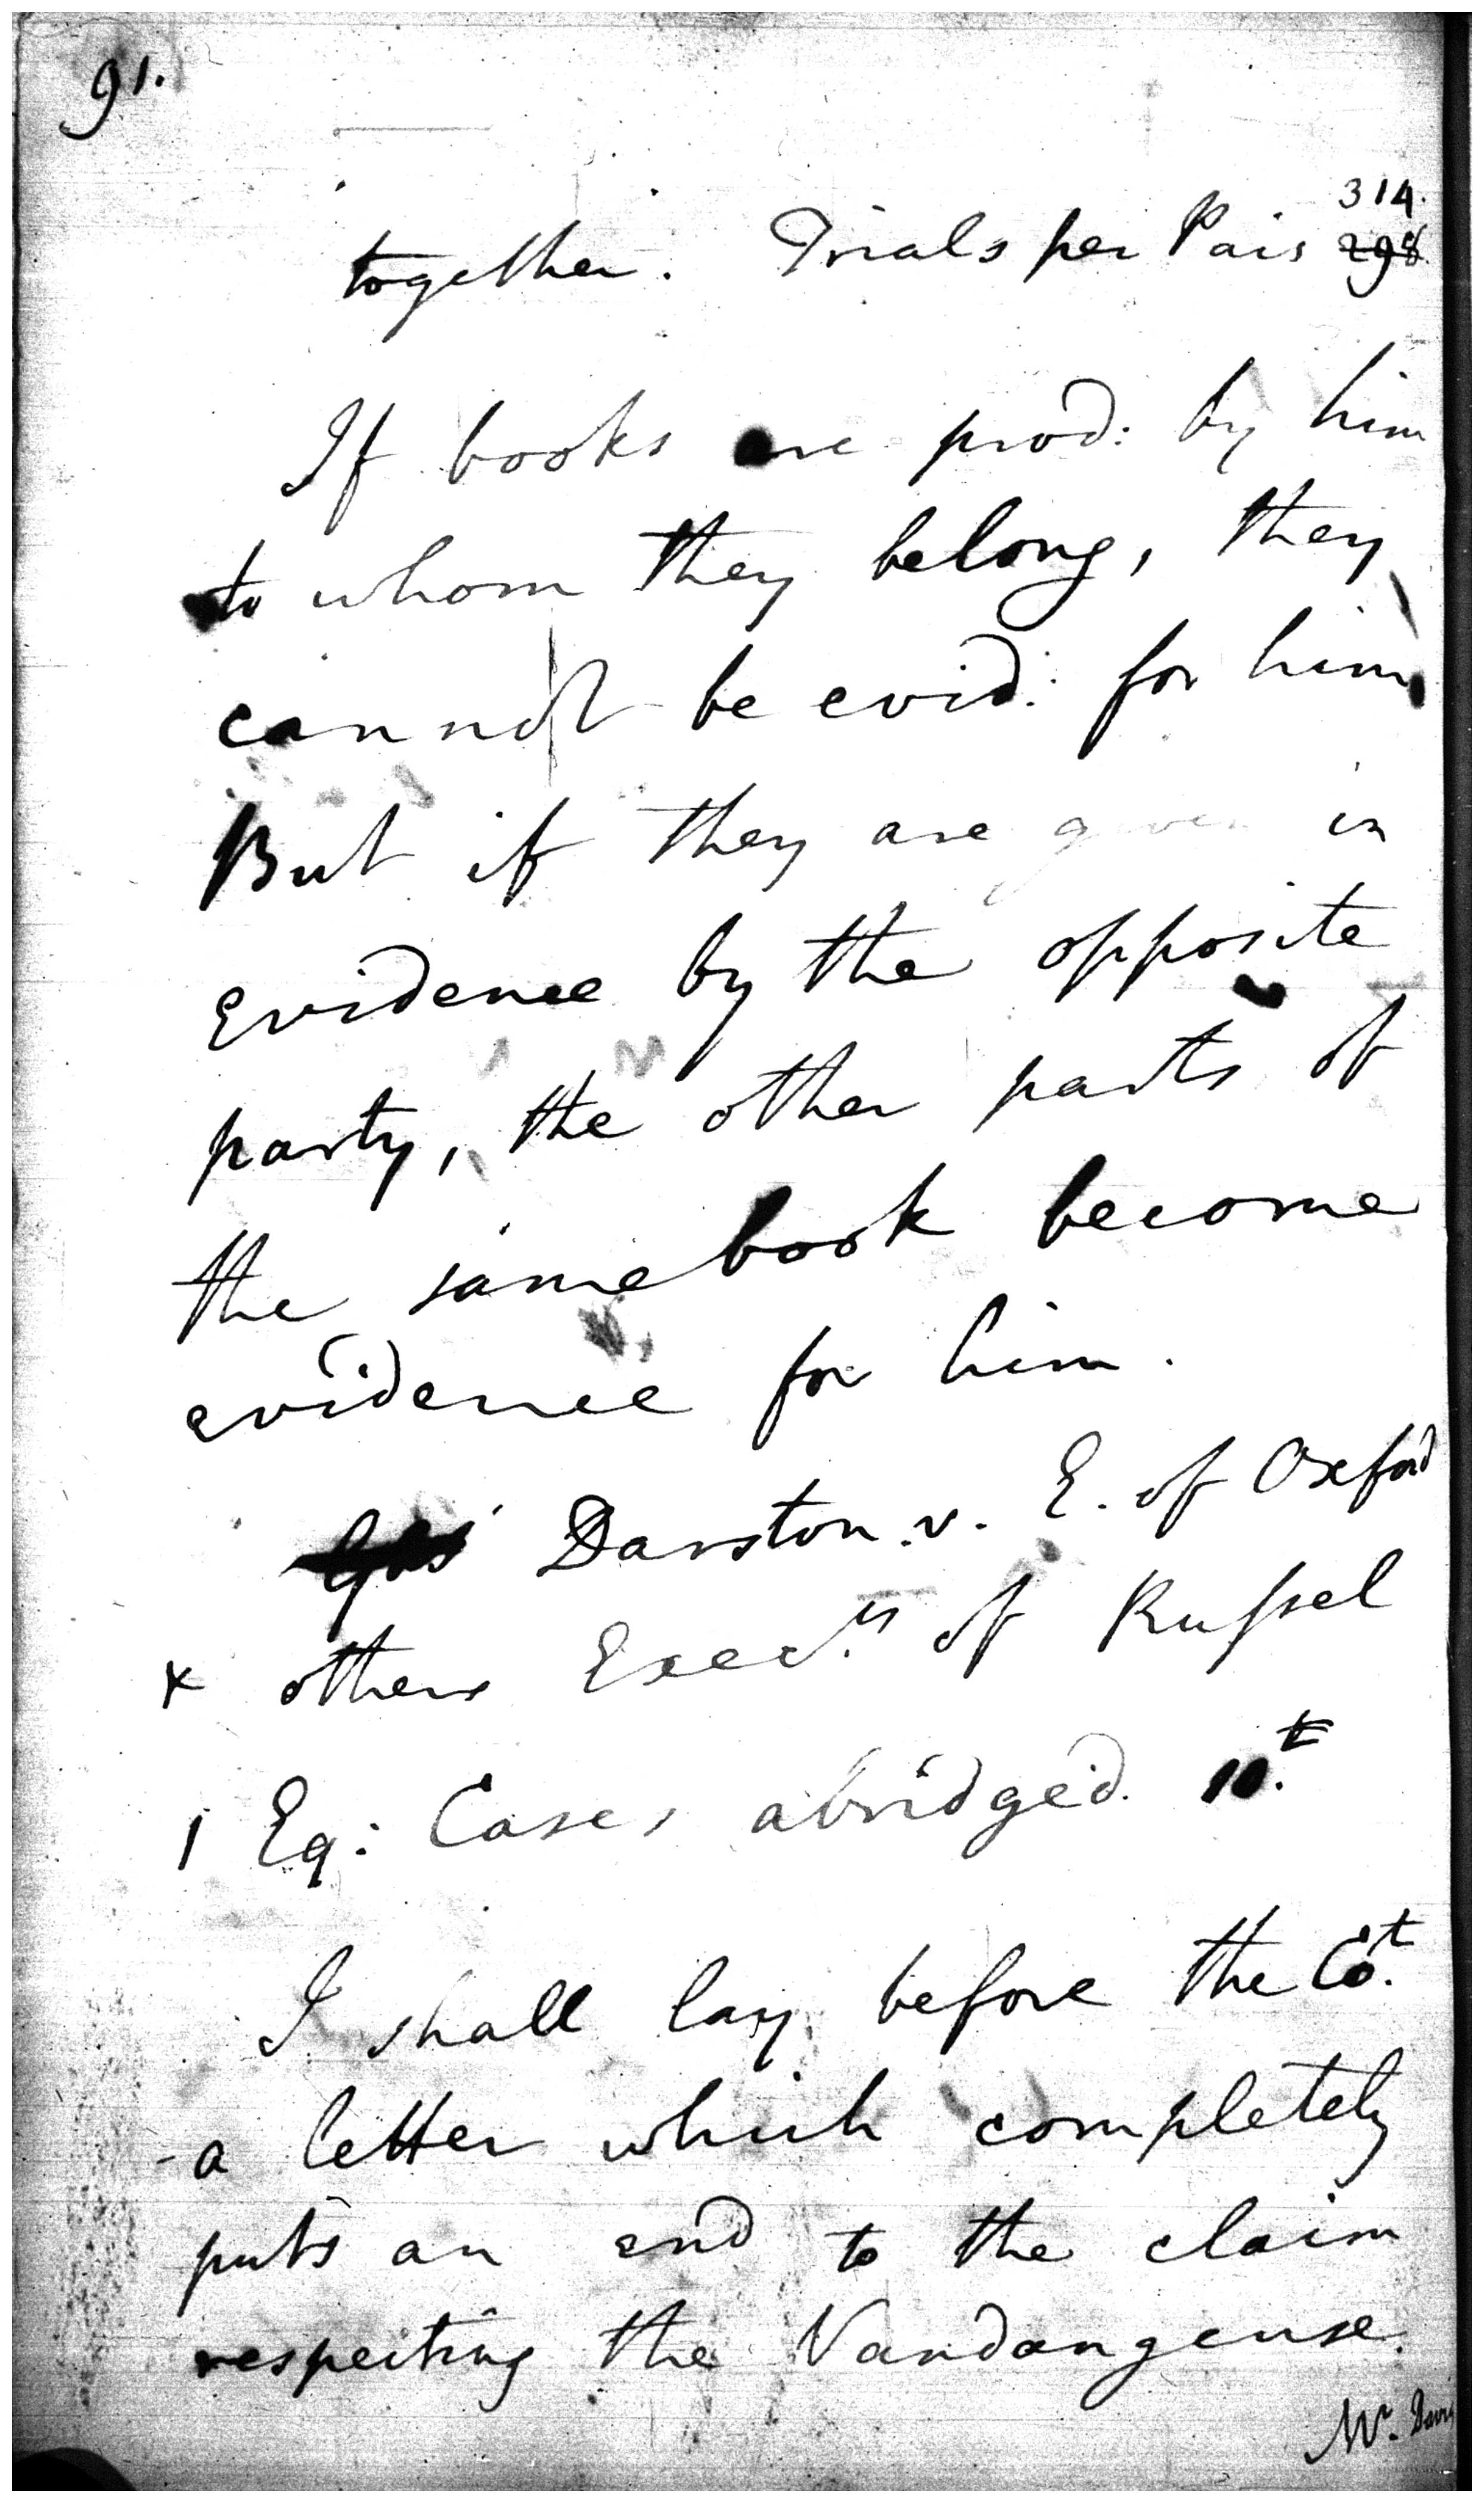 91.
314.
together. Trials per Pais 298.
If books are prod: by him
to whom they belong, they
cannot be evid: for him
But if they are given in
evidence by the opposite
party, the other parts of
the same book become
evidence for him.
Darston v. E. of Oxford
& others Exec.rs of Russel
1 Eq: Cases abridged. 10.
I shall lay before the Co.t
a letter which completely
puts an end to the claim
respecting the Vandangeuse.
Mr. Davi